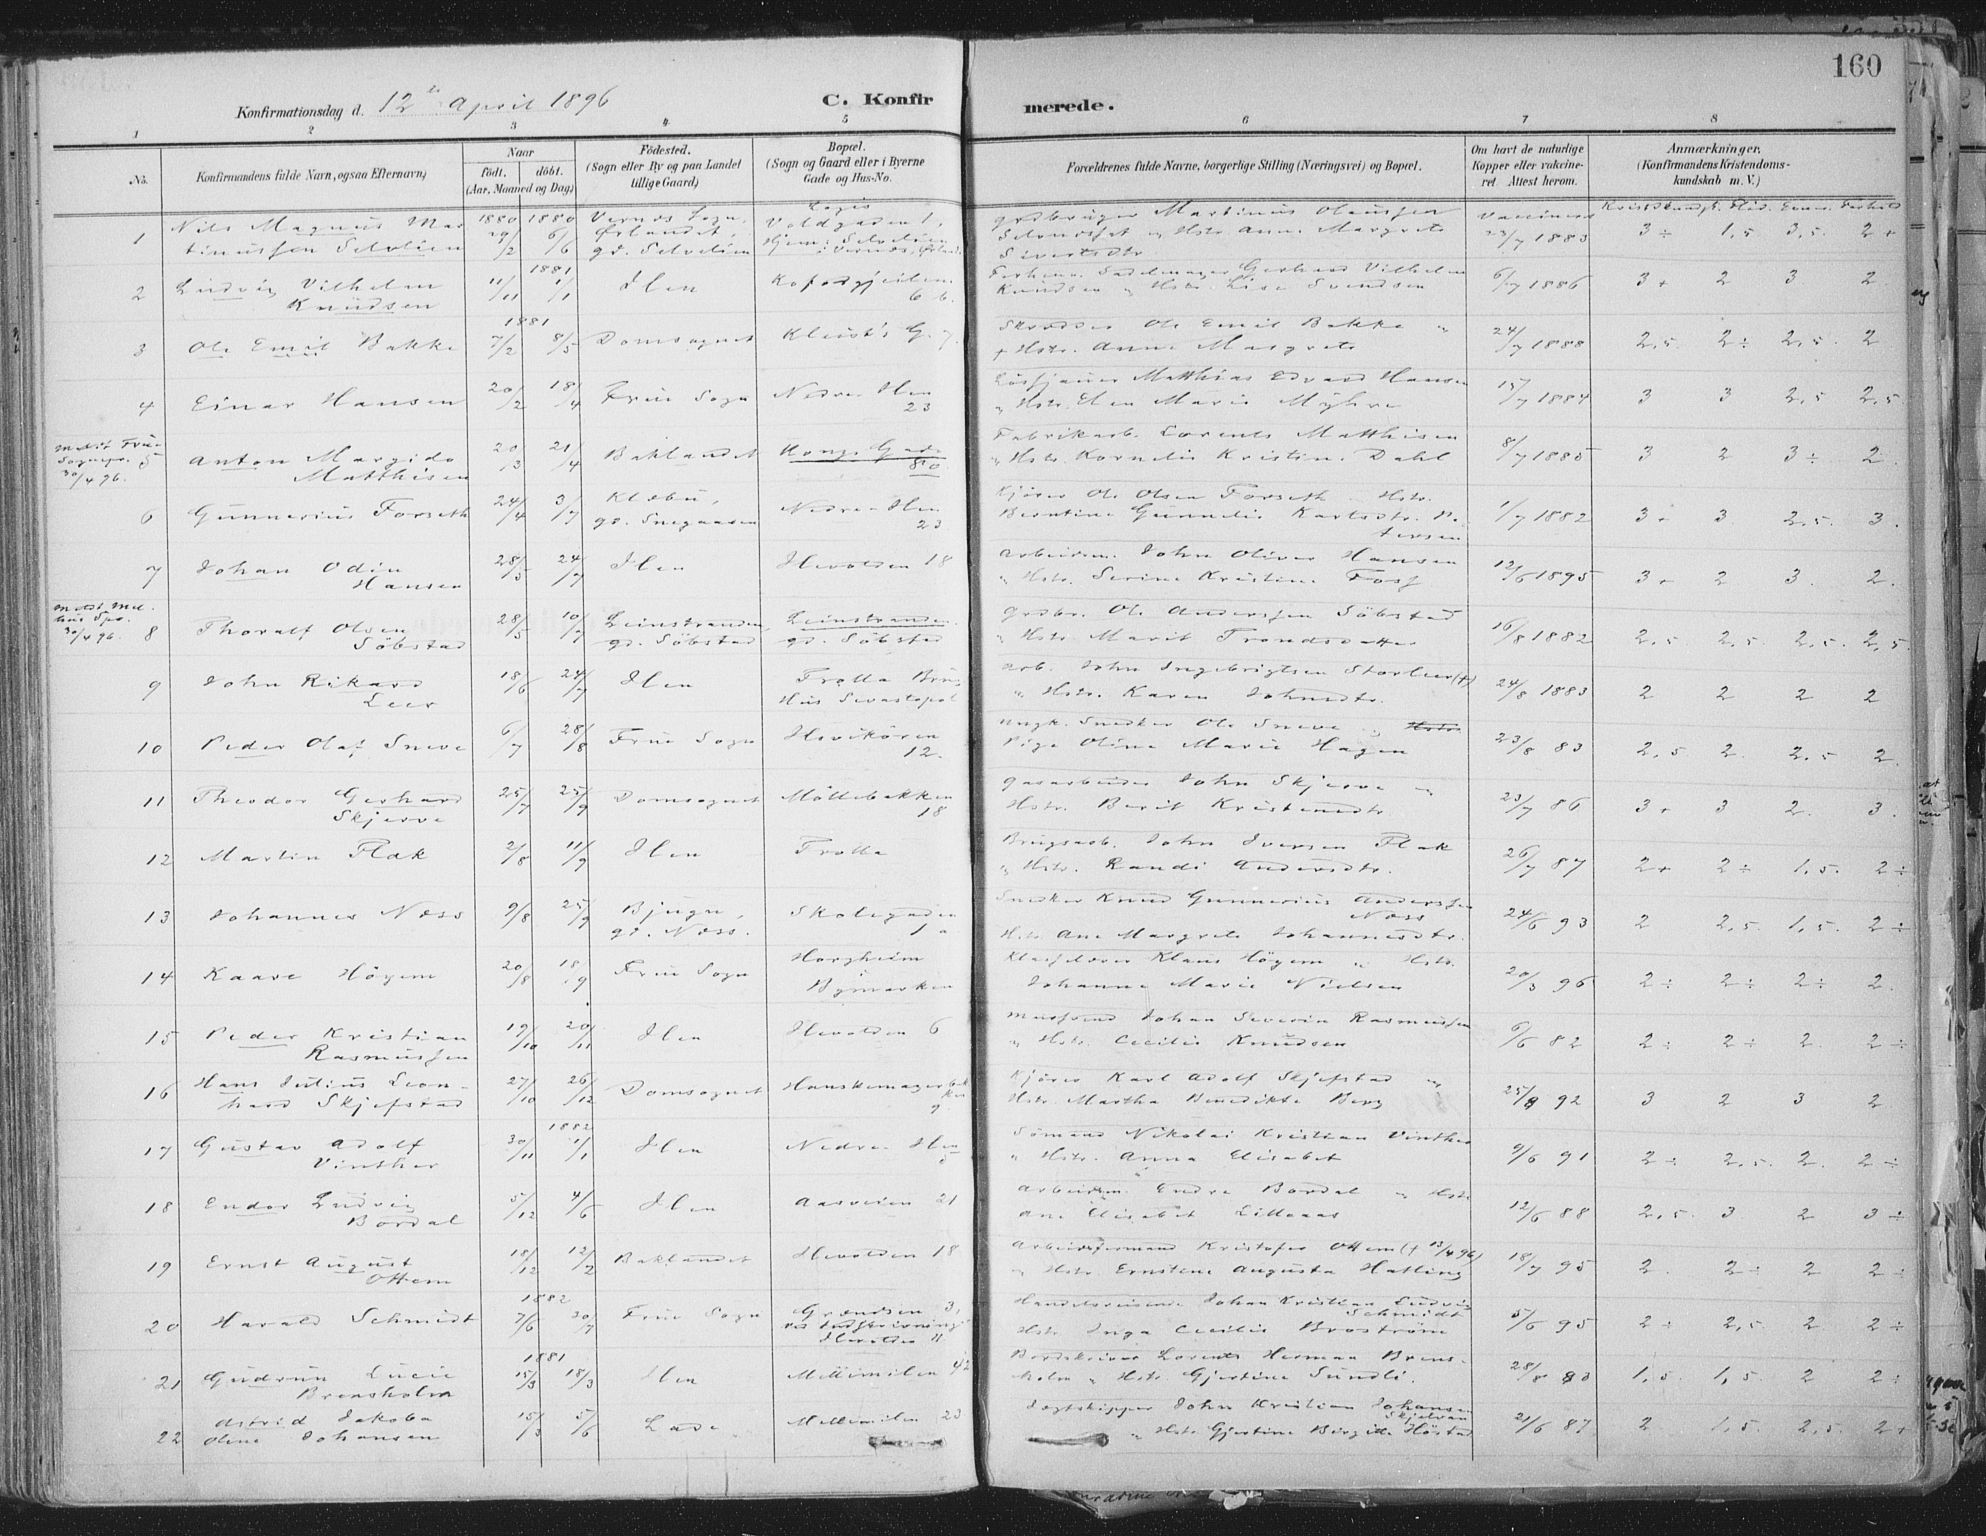 160
Konfirmationsdag d. 12te April 1896
C. Konfirmerede.
1 2 3 4 5 6 7 8
No.
Konfirmandens fulde Navn, ogsaa Efternavn)
Naar
födt. döbt.
(Aar, Maaned og Dag)
Födested.
(Sogn eller By og paa Landet
tillige Gaard)
Bopæl.
(Sogn og Gaard eller i Byerne
Gade og Hus-No.
Forældrenes fulde Navne, borgerlige Stilling (Næringsvei) og Bopæl.
Om havt de naturlige
Kopper eller vakcine-
ret. Attest herom.
Anmærkninger.
(Konfirmandens Kristendoms-
kundskab m. V.)
1 Nils Magnus Mar
tinussen Selvlien 1880 29/2 1880 6/6 Vernes Sogn, Ørlandet, gd. Selvlien Logis Voldgaden 1, Hjem: Selvlien i Vernes, Grdbruger Martinus Olaussen
Hstr. Anne Margrete Sivertsdtr. Vaccineret 23/7 1883 3 ÷ 1,5 3,5 2 +
2 Ludvig Vilhelm
Knudsen 11/11 1881 1/1 Ilen 6 b. Sadelmager Gerhard Vilhelm
Knudsen og Hstr. Lise Svendsen 6/7 1886 3 + 2 3 2
3 Ole Emil Bakke 1881 7/2 8/5 Domsognet Kleist's G. 7. Skrædder Ole Emil Bakke
Hstr. Anne Margrete 24/7 1888 2,5 2 ÷ 2,5 2
4 Einar Hansen 20/2 18/4 Frue Sogn Nedre Ilen
23 Matthias Edvard Hansen
Hstr. Elen Marie Myhre 15/7 1884 3 3 2,5 2,5
Meldt Frue
Sognepr.
30/4 96.
5 Anton Margido
Matthisen 20/3 21/4 Baklandet Kongs Gade
80 Fabrikarb. Lorents Matthisen
Hstr. Kornelie Kristine Dahl 8/7 1885 3 2 3 ÷ 2
6 Gunnerius Forseth 24/4 3/7 Klæbu,
gd. Snegaasen Nedre Ilen
23 Kjører Ole Olsen Forseth Hstr.
Berntine Gunnelie Karlsdtr. Pe-
tersen 1/7 1882 3 + 3 2,5 3
7 Johan Odin
Hansen 28/5 24/7 Ilen Hevolden 18 Arbeidsm. John Oliver Hansen
Hstr. Serine Kristine Foss 12/6 1895 3 + 2 3 2
Meldt Mel-
hus Spr.
30/4 96.
8 Thoralf Olsen
Söbstad 28/5 10/7 Leinstranden,
gd. Söbstad Leinstranden
gd. Söbstad Grdbr. Ole Anderssen Söbstad
Hstr. Marit Trondsdatter 16/8 1882 2,5 2,5 2,5 2,5
9 John Rikard
Leer 18/6 24/7 Ilen Trolla Brug
Hus Sevastopol Arb. John Ingebrigtsen Storleer (†)
Hstr. Karen Johnsdtr. 24/8 1883 2 2 2 2
10 Peder Olaf Sneve 6/7 28/8 Frue Sogn 12. Ungk. Snedker Ole Sneve
Pige Oline Marie Hagen 23/8 83 2,5 2 2,5 2
11 Theodor Gerhard
Skjerve 25/7 25/9 Domsognet Möllebakken
18 Gasarbeider John Skjerve
Hstr. Berit Kristensdtr 23/7 86 3 + 3 2 3
12 Martin Flak 2/8 11/9 Ilen Trolla Brugsarb. John Iversen Flak
Hstr. Randi Andersdtr. 26/7 87 2 + 2 ÷ 1,5 2 ÷
13 Johannes Næss 9/8 25/9 Bjugn,
gd. Næss. Skolegaden
1 a Snedker Knud Gunnerius Anderssen
Næss
Hstr. Ane Margrete Johannesdtr. 24/6 93 2 2,5 1,5 2 ÷
14 Kaare Höyem 20/8 18/9 Frue Sogn Horgheim
Bymarken Klaus Höyem Hstr.
Johanna Marie Nielsen 20/3 96 2 ÷ 2 ÷ 2 ÷ 2
15 Peder Kristian
Rasmussen 19/10 20/11 Ilen Hevolden 6 Mursvend Johan Severin Rasmussen
Hstr. Cecilie Knudsen 6/6 82 2 ÷ 2 ÷ 2 2 ÷
16 Hans Julius Leon-
hard Skjefstad 27/10 26/12 Domsognet Hanskemagerbak
ken
9 Kjører Karl Adolf Skjefstad
Hstr. Martha Benedikte Berg 25/8 92 3 2 3 2
17 Gustav Adolf
Vinther 30/11 1882 1/1 Ilen Nedre Ilen
5 Sömand Nikolai Kristian Vinther
Hstr. Anna Elisabet 9/6 91 2 ÷ 2,5 2 2 ÷
18 Endor Ludvig
Bordal 5/12 4/6 Ilen Aasveien 21 Arbeidsm. Endre Bordal Hstr
Ane Elisabet Lilleaas 12/6 88 2,5 3 2 3 ÷
19 Ernst August
Ottem 18/12 12/2 Baklandet Hevolden 18 Arbeidsformand Kristofer Ottem († 13/4 96)
Hstr. Ernstine Augusta Hatling 18/7 95 2 2 ÷ 2 2 ÷
20 Harald Schmidt 1882 7/6 30/7 Frue Sogn Grændsen 3,
ved Indskrivning
Hevolden 11 Handelsreisende Johan Kristian Ludvig
Schmidt
Hstr. Inga Cecilie Broström 5/6 95 2 ÷ 2,5 2 2 ÷
21 Gudrun Lucie
Brensholm 1881 15/3 18/3 Ilen Mellemilen 42 Bordskriver Lorents Herman Brens-
holm Hstr. Gjertine Sundli. 28/8 83 1,5 1,5 2 2 ÷
22 Astrid Jakoba
Oline Johansen 15/3 5/6 Lade Mellemilen 23 Jagtskipper John Kristian Johansen
Skjelvan
Hstr. Gjertine Birgitte Höstad 21/6 87 2 1,5 2,5 2 +